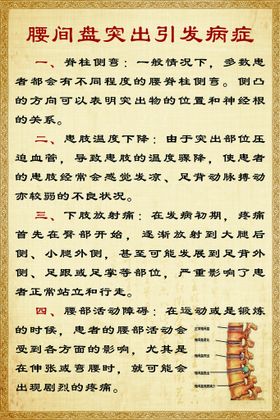 腰间盘突出引发病症
一、脊柱侧弯：一般情况下，多数患
者都会有不同程度的腰脊柱侧弯。侧凸
的方向可以表明突出物的位置和神经根
的关系。
二、患肢温度下降：由于突出部位压
迫血管，导致患肢的温度骤降，使患者
的患肢经常会感觉发凉、足背动脉搏动
亦较弱的不良状况。
三、下肢放射痛：在发病初期，疼痛
首先在臀部开始，逐渐放射到大腿后
侧、小腿外侧，甚至可能发展到足背外
侧、足跟或足掌等部位，严重影响了患
者正常站立和行走。
四、腰部活动障碍：在运动或是锻炼
的时候，患者的腰部活动会
受到各方面的影响，尤其是
在伸张或弯腰时，就可能会
出现剧烈的疼痛。